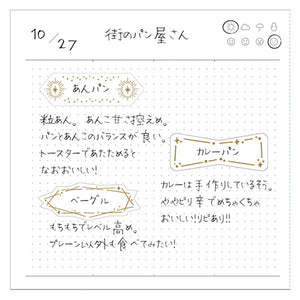 10/27 街のパン屋さん
あんパン
粒あん。あんこ甘さ控えめ。
パンとあんこのバランスが良い。
トースターであたためると
なおおいしい!
カレーパン
カレーは手作りしているそう。
ややピリ辛でめちゃくちゃ
おいしい!リピあり!!
ベーグル
もちもちでレベル高め。
プレーン以外も食べてみたい!